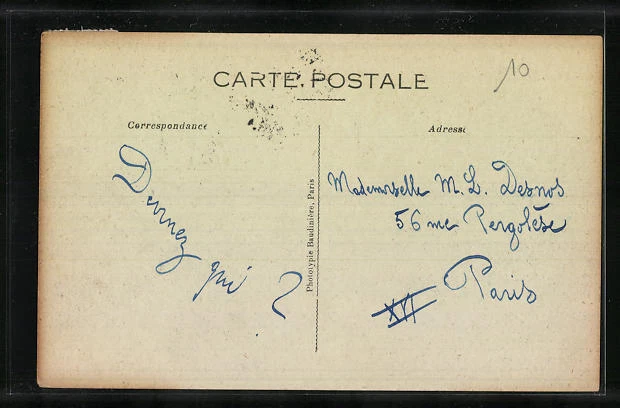 10
CARTE POSTALE
Correspondance
Adresse
Devinez
qui
?
Phototypie Baudinière, Paris
Mademoiselle M. L. Desnos
56 rue Pergolèse
Paris
XVI